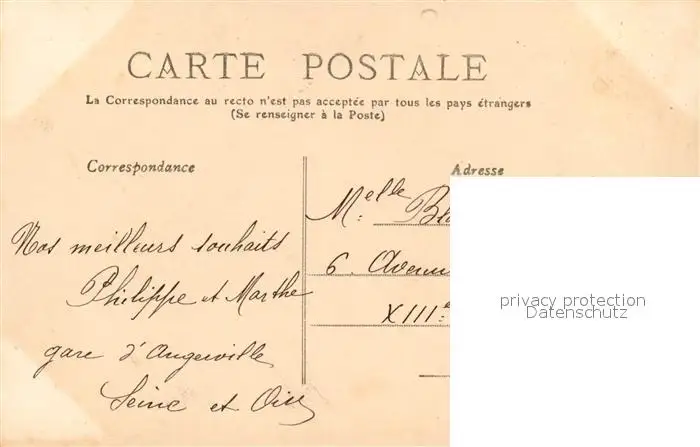 CARTE POSTALE
La Correspondance au recto n'est pas acceptée par tous les pays étrangers
(Se renseigner à la Poste)
Correspondance
Nos meilleurs souhaits
Philippe et Marthe
gare d'Angerville
Seine et Oise
Adresse
Melle
6. Avenu
XIIIe
privacy protection
Datenschutz